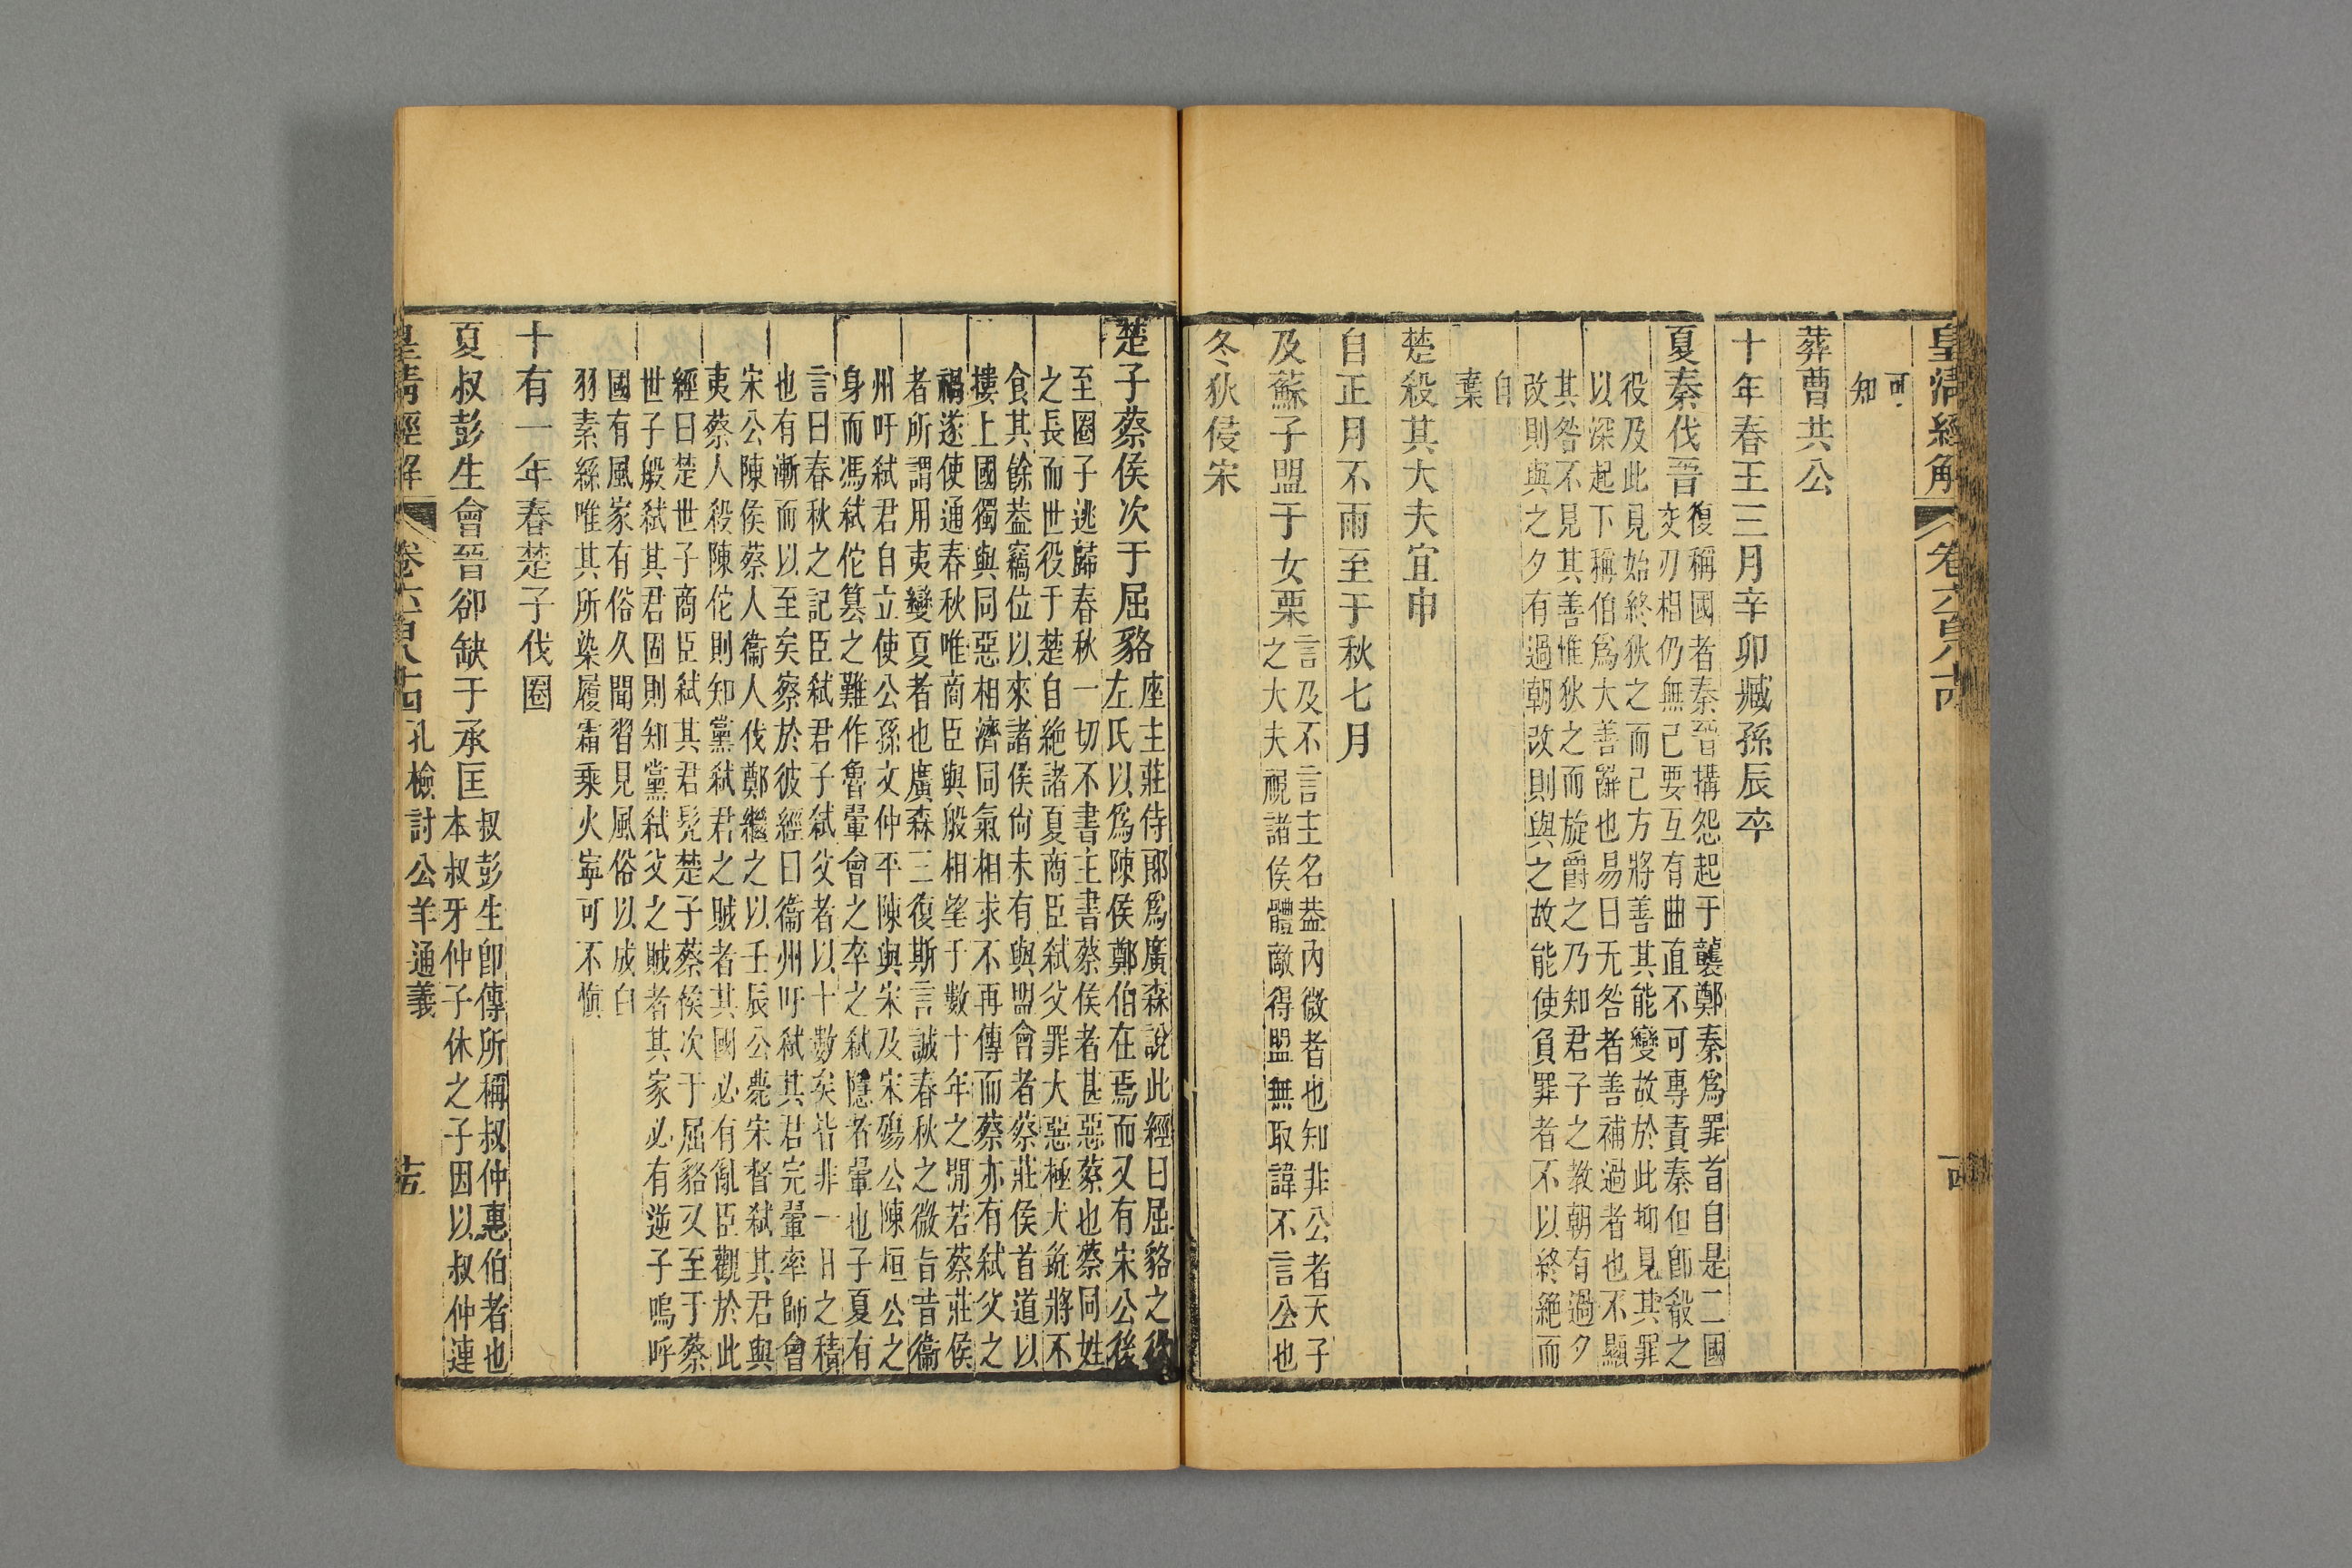 皇清經解 卷六百八十四 十四
可
知
葬曹共公
十年春王三月辛卯臧孫辰卒
夏秦伐晉
復稱國者秦晉搆怨起于襲鄭秦爲罪首自是二國
交刃相仍無已要互有曲直不可專責秦但卽殽之
役及此見始終狄之而已方將善其能變故於此抑見其罪
以深起下稱伯爲大善辭也易曰无咎者善補過者也不顯
其咎不見其善惟狄之而旋爵之乃知君子之教朝有過夕
改則與之夕有過朝改則與之故能使負罪者不以終絶而
自
棄
楚殺其大夫宜申
自正月不雨至于秋七月
及蘇子盟于女栗
言及不言主名葢內微者也知非公者天子
之大夫視諸侯體敵得盟無取諱不言公也
冬狄侵宋
楚子蔡侯次于屈貉
座主莊侍郎爲廣森說此經曰屈貉之役
左氏以爲陳侯鄭伯在焉而又有宋公後
至圈子逃歸春秋一切不書主書蔡侯者甚惡蔡也蔡同姓
之長而世役于楚自絶諸夏商臣弑父罪大惡極犬彘將不
食其餘葢竊位以來諸侯尙未有與盟會者蔡莊侯首道以
摟上國獨與同惡相濟同氣相求不再傳而蔡亦有弑父之
禍遂使通春秋唯商臣與般相望于數十年之閒若蔡莊侯
者所謂用夷變夏者也廣森三復斯言誠春秋之微旨昔衞
州吁弑君自立使公孫文仲平陳與宋及宋殤公陳桓公之
身而馮弑佗篡之難作魯翬會之卒之弑隱者翬也子夏有
言曰春秋之記臣弑君子弑父者以十數矣皆非一日之積
也有漸而以至矣察於彼經曰衞州吁弑其君完翬率師會
宋公陳侯蔡人衞人伐鄭繼之以壬辰公薨宋督弑其君與
夷蔡人殺陳佗則知黨弑君之賊者其國必有亂臣觀於此
經曰楚世子商臣弑其君髡楚子蔡侯次于屈貉又至于蔡
世子般弑其君固則知黨弑父之賊者其家必有逆子嗚呼
國有風家有俗久聞習見風俗以成白
羽素絲唯其所染履霜乘火寧可不愼
十有一年春楚子伐圈
夏叔彭生會晉郤缺于承匡
叔彭生卽傳所稱叔仲惠伯者也
本叔牙仲子休之子因以叔仲連
皇清經解 卷六百八十四 孔檢討公羊通義 十五